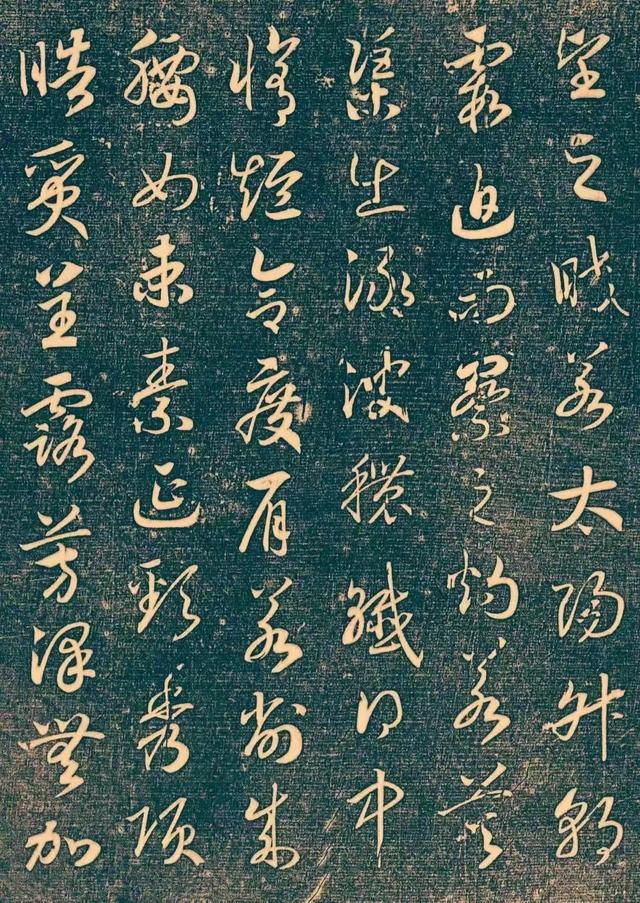 望之晈若太陽升朝
霞迫而察之灼若芙
渠出淥波穠纖得中
脩短合度肩若削成
腰如束素延頸秀項
晧質呈露芳澤無加